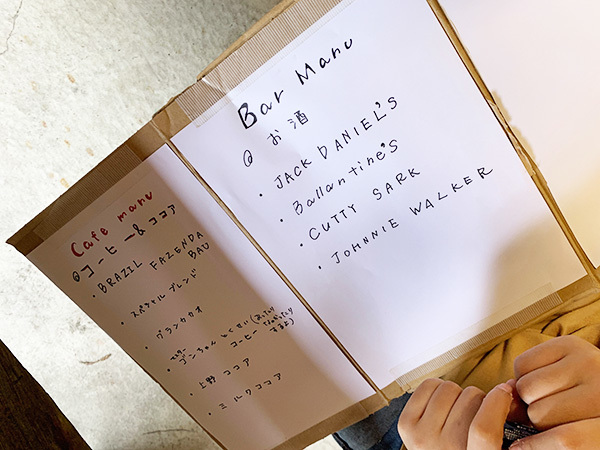 Cafe manu
◎コーヒー&ココア
・BRAZIL FAZENDA
BAU
・スペシャルブレンド
・グランカカオ
・ゴンちゃん とくせい
コーヒー
・上野 ココア
・ミルクココア
Bar Manu
◎ お酒
・JACK DANIEL'S
・Ballantine's
・CUTTY SARK
・JOHNNIE WALKER